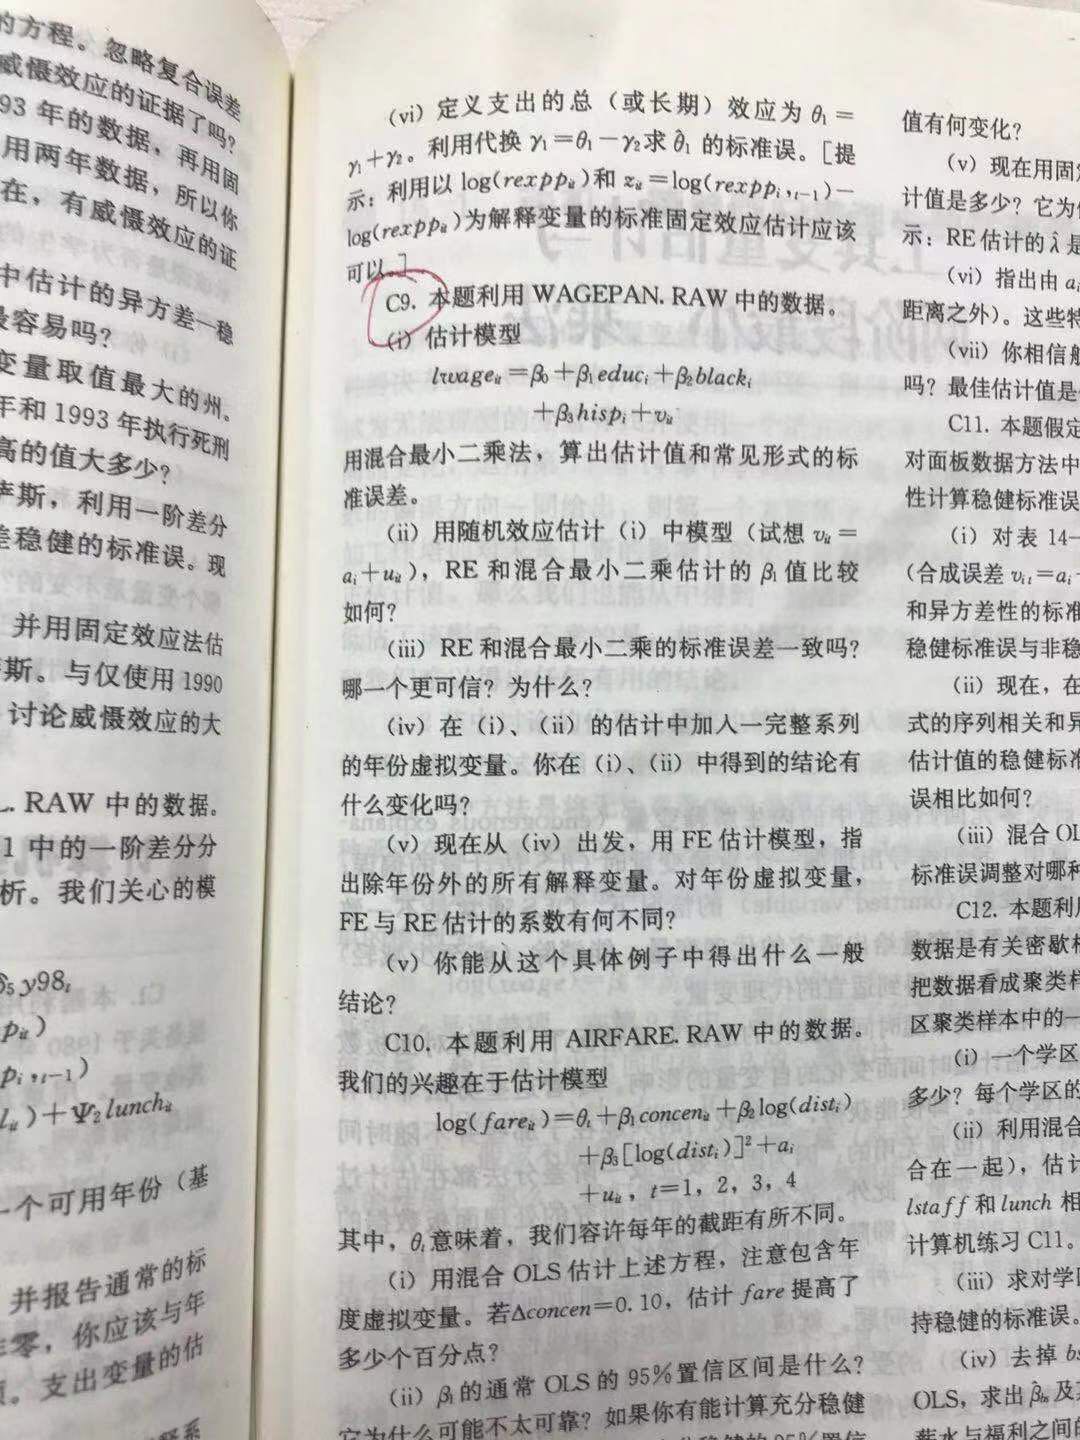 的方程。忽略复合误差
威慑效应的证据了吗？
93 年的数据，再用固
用两年数据，所以你
在，有威慑效应的证
中估计的异方差—稳
最容易吗？
变量取值最大的州。
年和 1993 年执行死刑
高的值大多少？
萨斯，利用一阶差分
差稳健的标准误。现
并用固定效应法估
斯。与仅使用 1990
讨论威慑效应的大
L. RAW 中的数据。
1 中的一阶差分分
析。我们关心的模
δ₅y98ᵢ
pᵢₜ)
pᵢ,ₜ₋₁)
lᵢₜ)+Ψ₂lunchᵢₜ
一个可用年份（基
并报告通常的标
零，你应该与年
。支出变量的估
(vi) 定义支出的总（或长期）效应为 θ₁=
γ₁+γ₂。利用代换 γ₁=θ₁−γ₂求 θ̂₁ 的标准误。[提
示：利用以 log(rexppᵢₜ)和 zᵢₜ=log(rexppᵢ,ₜ₋₁)−
log(rexppᵢₜ)为解释变量的标准固定效应估计应该
可以。]
C9. 本题利用 WAGEPAN. RAW 中的数据。
(i) 估计模型
lwageᵢₜ=β₀+β₁educᵢ+β₂blackᵢ
+β₃hispᵢ+vᵢₜ
用混合最小二乘法，算出估计值和常见形式的标
准误差。
(ii) 用随机效应估计（i）中模型（试想 vᵢₜ=
aᵢ+uᵢₜ），RE 和混合最小二乘估计的 β₁ 值比较
如何？
(iii) RE 和混合最小二乘的标准误差一致吗？
哪一个更可信？为什么？
(iv) 在（i）、（ii）的估计中加入一完整系列
的年份虚拟变量。你在（i）、（ii）中得到的结论有
什么变化吗？
(v) 现在从（iv）出发，用 FE 估计模型，指
出除年份外的所有解释变量。对年份虚拟变量，
FE 与 RE 估计的系数有何不同？
(v) 你能从这个具体例子中得出什么一般
结论？
C10. 本题利用 AIRFARE. RAW 中的数据。
我们的兴趣在于估计模型
log(fareᵢₜ)=θₜ+β₁concenᵢₜ+β₂log(distᵢ)
+β₃[log(distᵢ)]²+aᵢ
+uᵢₜ, t=1, 2, 3, 4
其中，θₜ意味着，我们容许每年的截距有所不同。
(i) 用混合 OLS 估计上述方程，注意包含年
度虚拟变量。若Δconcen=0.10，估计 fare 提高了
多少个百分点？
(ii) β₁的通常 OLS 的 95%置信区间是什么？
它为什么可能不太可靠？如果你有能计算充分稳健
值有何变化？
(v) 现在用固定
计值是多少？它为
示：RE 估计的 λ̂ 是
(vi) 指出由 aᵢ
距离之外）。这些特
(vii) 你相信
吗？最佳估计值是
C11. 本题假定
对面板数据方法中
性计算稳健标准误
(i) 对表 14—
(合成误差 vᵢₜ=aᵢ
和异方差性的标准
稳健标准误与非稳
(ii) 现在，在
式的序列相关和异
估计值的稳健标准
误相比如何？
(iii) 混合 OL
标准误调整对哪种
C12. 本题利用
数据是有关密歇根
把数据看成聚类样
区聚类样本中的一
(i) 一个学区
多少？每个学区的
(ii) 利用混合
合在一起），估计
lstaff 和 lunch 相
计算机练习 C11。
(iii) 求对学区
持稳健的标准误。
(iv) 去掉 bs
OLS，求出 β̂bs 及
薪水与福利之间的